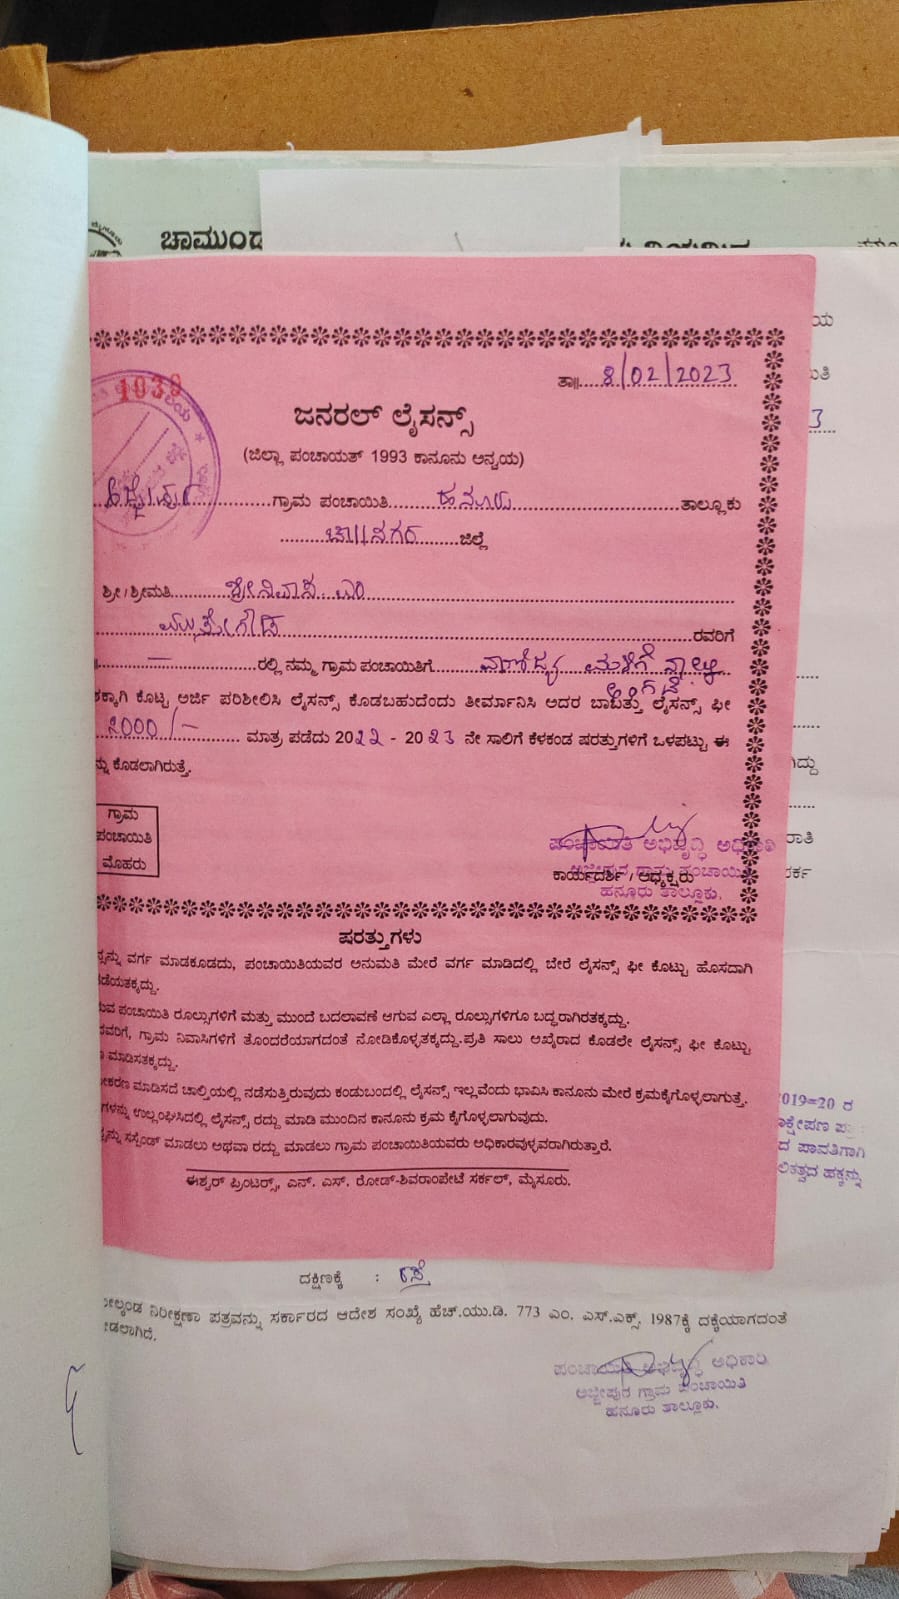 ಚಾಮುಂಡ
1039
ತಾ॥ 8/02/2023
ಜನರಲ್ ಲೈಸನ್ಸ್
(ಜಿಲ್ಲಾ ಪಂಚಾಯತ್ 1993 ಕಾನೂನು ಅನ್ವಯ)
ಗ್ರಾಮ ಪಂಚಾಯಿತಿ ಹನೂರು ತಾಲ್ಲೂಕು
ಚಾ||ನಗರ ಜಿಲ್ಲೆ
ಶ್ರೀ/ಶ್ರೀಮತಿ ಶ್ರೀನಿವಾಸ ಎಂ
ಮುತ್ತೇಗೌಡ ರವರಿಗೆ
— ರಲ್ಲಿ ನಮ್ಮ ಗ್ರಾಮ ಪಂಚಾಯಿತಿಗೆ ವಾಣಿಜ್ಯ ಮಳಿಗೆ
ಕ್ಕಾಗಿ ಕೊಟ್ಟ ಅರ್ಜಿ ಪರಿಶೀಲಿಸಿ ಲೈಸನ್ಸ್ ಕೊಡಬಹುದೆಂದು ತೀರ್ಮಾನಿಸಿ ಅದರ ಬಾಬತ್ತು ಲೈಸನ್ಸ್ ಫೀ
2000/- ಮಾತ್ರ ಪಡೆದು 2022 - 2023 ನೇ ಸಾಲಿಗೆ ಕೆಳಕಂಡ ಷರತ್ತುಗಳಿಗೆ ಒಳಪಟ್ಟು ಈ
ನ್ನು ಕೊಡಲಾಗಿರುತ್ತೆ.
ಗ್ರಾಮ
ಪಂಚಾಯಿತಿ
ಮೊಹರು
ಪಂಚಾಯಿತಿ ಅಭಿವೃದ್ಧಿ ಅಧಿಕಾರಿ
ಅಜ್ಜೀಪುರ ಗ್ರಾಮ ಪಂಚಾಯಿತಿ
ಕಾರ್ಯದರ್ಶಿ / ಅಧ್ಯಕ್ಷರು
ಹನೂರು ತಾಲ್ಲೂಕು.
ಷರತ್ತುಗಳು
ನ್ಸನ್ನು ವರ್ಗ ಮಾಡಕೂಡದು, ಪಂಚಾಯಿತಿಯವರ ಅನುಮತಿ ಮೇರೆ ವರ್ಗ ಮಾಡಿದಲ್ಲಿ ಬೇರೆ ಲೈಸನ್ಸ್ ಫೀ ಕೊಟ್ಟು ಹೊಸದಾಗಿ
ಡೆಯತಕ್ಕದ್ದು.
ುವ ಪಂಚಾಯಿತಿ ರೂಲ್ಸುಗಳಿಗೆ ಮತ್ತು ಮುಂದೆ ಬದಲಾವಣೆ ಆಗುವ ಎಲ್ಲಾ ರೂಲ್ಸುಗಳಿಗೂ ಬದ್ಧರಾಗಿರತಕ್ಕದ್ದು.
ವರಿಗೆ, ಗ್ರಾಮ ನಿವಾಸಿಗಳಿಗೆ ತೊಂದರೆಯಾಗದಂತೆ ನೋಡಿಕೊಳ್ಳತಕ್ಕದ್ದು.ಪ್ರತಿ ಸಾಲು ಅಖೈರಾದ ಕೊಡಲೇ ಲೈಸನ್ಸ್ ಫೀ ಕೊಟ್ಟು
ಮಾಡಿಸತಕ್ಕದ್ದು.
ೀಕರಣ ಮಾಡಿಸದೆ ಚಾಲ್ತಿಯಲ್ಲಿ ನಡೆಸುತ್ತಿರುವುದು ಕಂಡುಬಂದಲ್ಲಿ ಲೈಸನ್ಸ್ ಇಲ್ಲವೆಂದು ಭಾವಿಸಿ ಕಾನೂನು ಮೇರೆ ಕ್ರಮಕೈಗೊಳ್ಳಲಾಗುತ್ತೆ.
ಗಳನ್ನು ಉಲ್ಲಂಘಿಸಿದಲ್ಲಿ ಲೈಸನ್ಸ್ ರದ್ದು ಮಾಡಿ ಮುಂದಿನ ಕಾನೂನು ಕ್ರಮ ಕೈಗೊಳ್ಳಲಾಗುವುದು.
ನ್ನು ಸಸ್ಪೆಂಡ್ ಮಾಡಲು ಅಥವಾ ರದ್ದು ಮಾಡಲು ಗ್ರಾಮ ಪಂಚಾಯಿತಿಯವರು ಅಧಿಕಾರವುಳ್ಳವರಾಗಿರುತ್ತಾರೆ.
ಈಶ್ವರ್ ಪ್ರಿಂಟರ್ಸ್, ಎನ್. ಎಸ್. ರೋಡ್-ಶಿವರಾಂಪೇಟೆ ಸರ್ಕಲ್, ಮೈಸೂರು.
2019=20 ರ
ಾಕ್ಷೇಪಣ
ದ ಪಾವತಿಗಾಗಿ
ಲಿಕತ್ವದ ಹಕ್ಕನ್ನು
ದಕ್ಷಿಣಕ್ಕೆ : ರಸ್ತೆ
ಮೇಲ್ಕಂಡ ನಿರೀಕ್ಷಣಾ ಪತ್ರವನ್ನು ಸರ್ಕಾರದ ಆದೇಶ ಸಂಖ್ಯೆ ಹೆಚ್.ಯು.ಡಿ. 773 ಎಂ. ಎಸ್.ಎಕ್ಸ್. 1987ಕ್ಕೆ ದಕ್ಕೆಯಾಗದಂತೆ
ೀಡಲಾಗಿದೆ.
ಪಂಚಾಯಿತಿ ಅಭಿವೃದ್ಧಿ ಅಧಿಕಾರಿ
ಅಜ್ಜೀಪುರ ಗ್ರಾಮ ಪಂಚಾಯಿತಿ
ಹನೂರು ತಾಲ್ಲೂಕು.